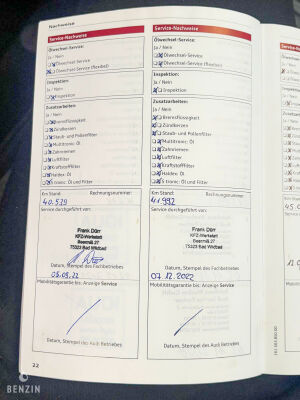 Nachweise
Service-Nachweise
Ölwechsel-Service:
Ja / Nein
Ölwechsel-Service
Ölwechsel-Service (flexibel)
Inspektion:
Ja / Nein
Inspektion
Zusatzarbeiten:
Ja / Nein
Bremsflüssigkeit
Zündkerzen
Staub- und Pollenfilter
Multitronic: Öl
Zahnriemen
Luftfilter
Kraftstofffilter
Haldex: Öl
S tronic: Öl und Filter
Km Stand:
Rechnungsnummer:
40.529
Service durchgeführt von:
Frank Dürr
KFZ-Werkstatt
Beermiß 27
75323 Bad Wildbad
05.09.22
Datum, Stempel des Fachbetriebes
Mobilitätsgarantie bis: Anzeige Service
Datum, Stempel des Audi Betriebes
22
Service-Nachweise
Ölwechsel-Service:
Ja / Nein
Ölwechsel-Service
Ölwechsel-Service (flexibel)
Inspektion:
Ja / Nein
Inspektion
Zusatzarbeiten:
Ja / Nein
Bremsflüssigkeit
Zündkerzen
Staub- und Pollenfilter
Multitronic: Öl
Zahnriemen
Luftfilter
Kraftstofffilter
Haldex: Öl
S tronic: Öl und Filter
Km Stand:
Rechnungsnummer:
41.992
Service durchgeführt von:
Frank Dürr
KFZ-Werkstatt
Beermiß 27
75323 Bad Wildbad
07.12.2022
Datum, Stempel des Fachbetriebes
Mobilitätsgarantie bis: Anzeige Service
Datum, Stempel des Audi Betriebes
BENZIN